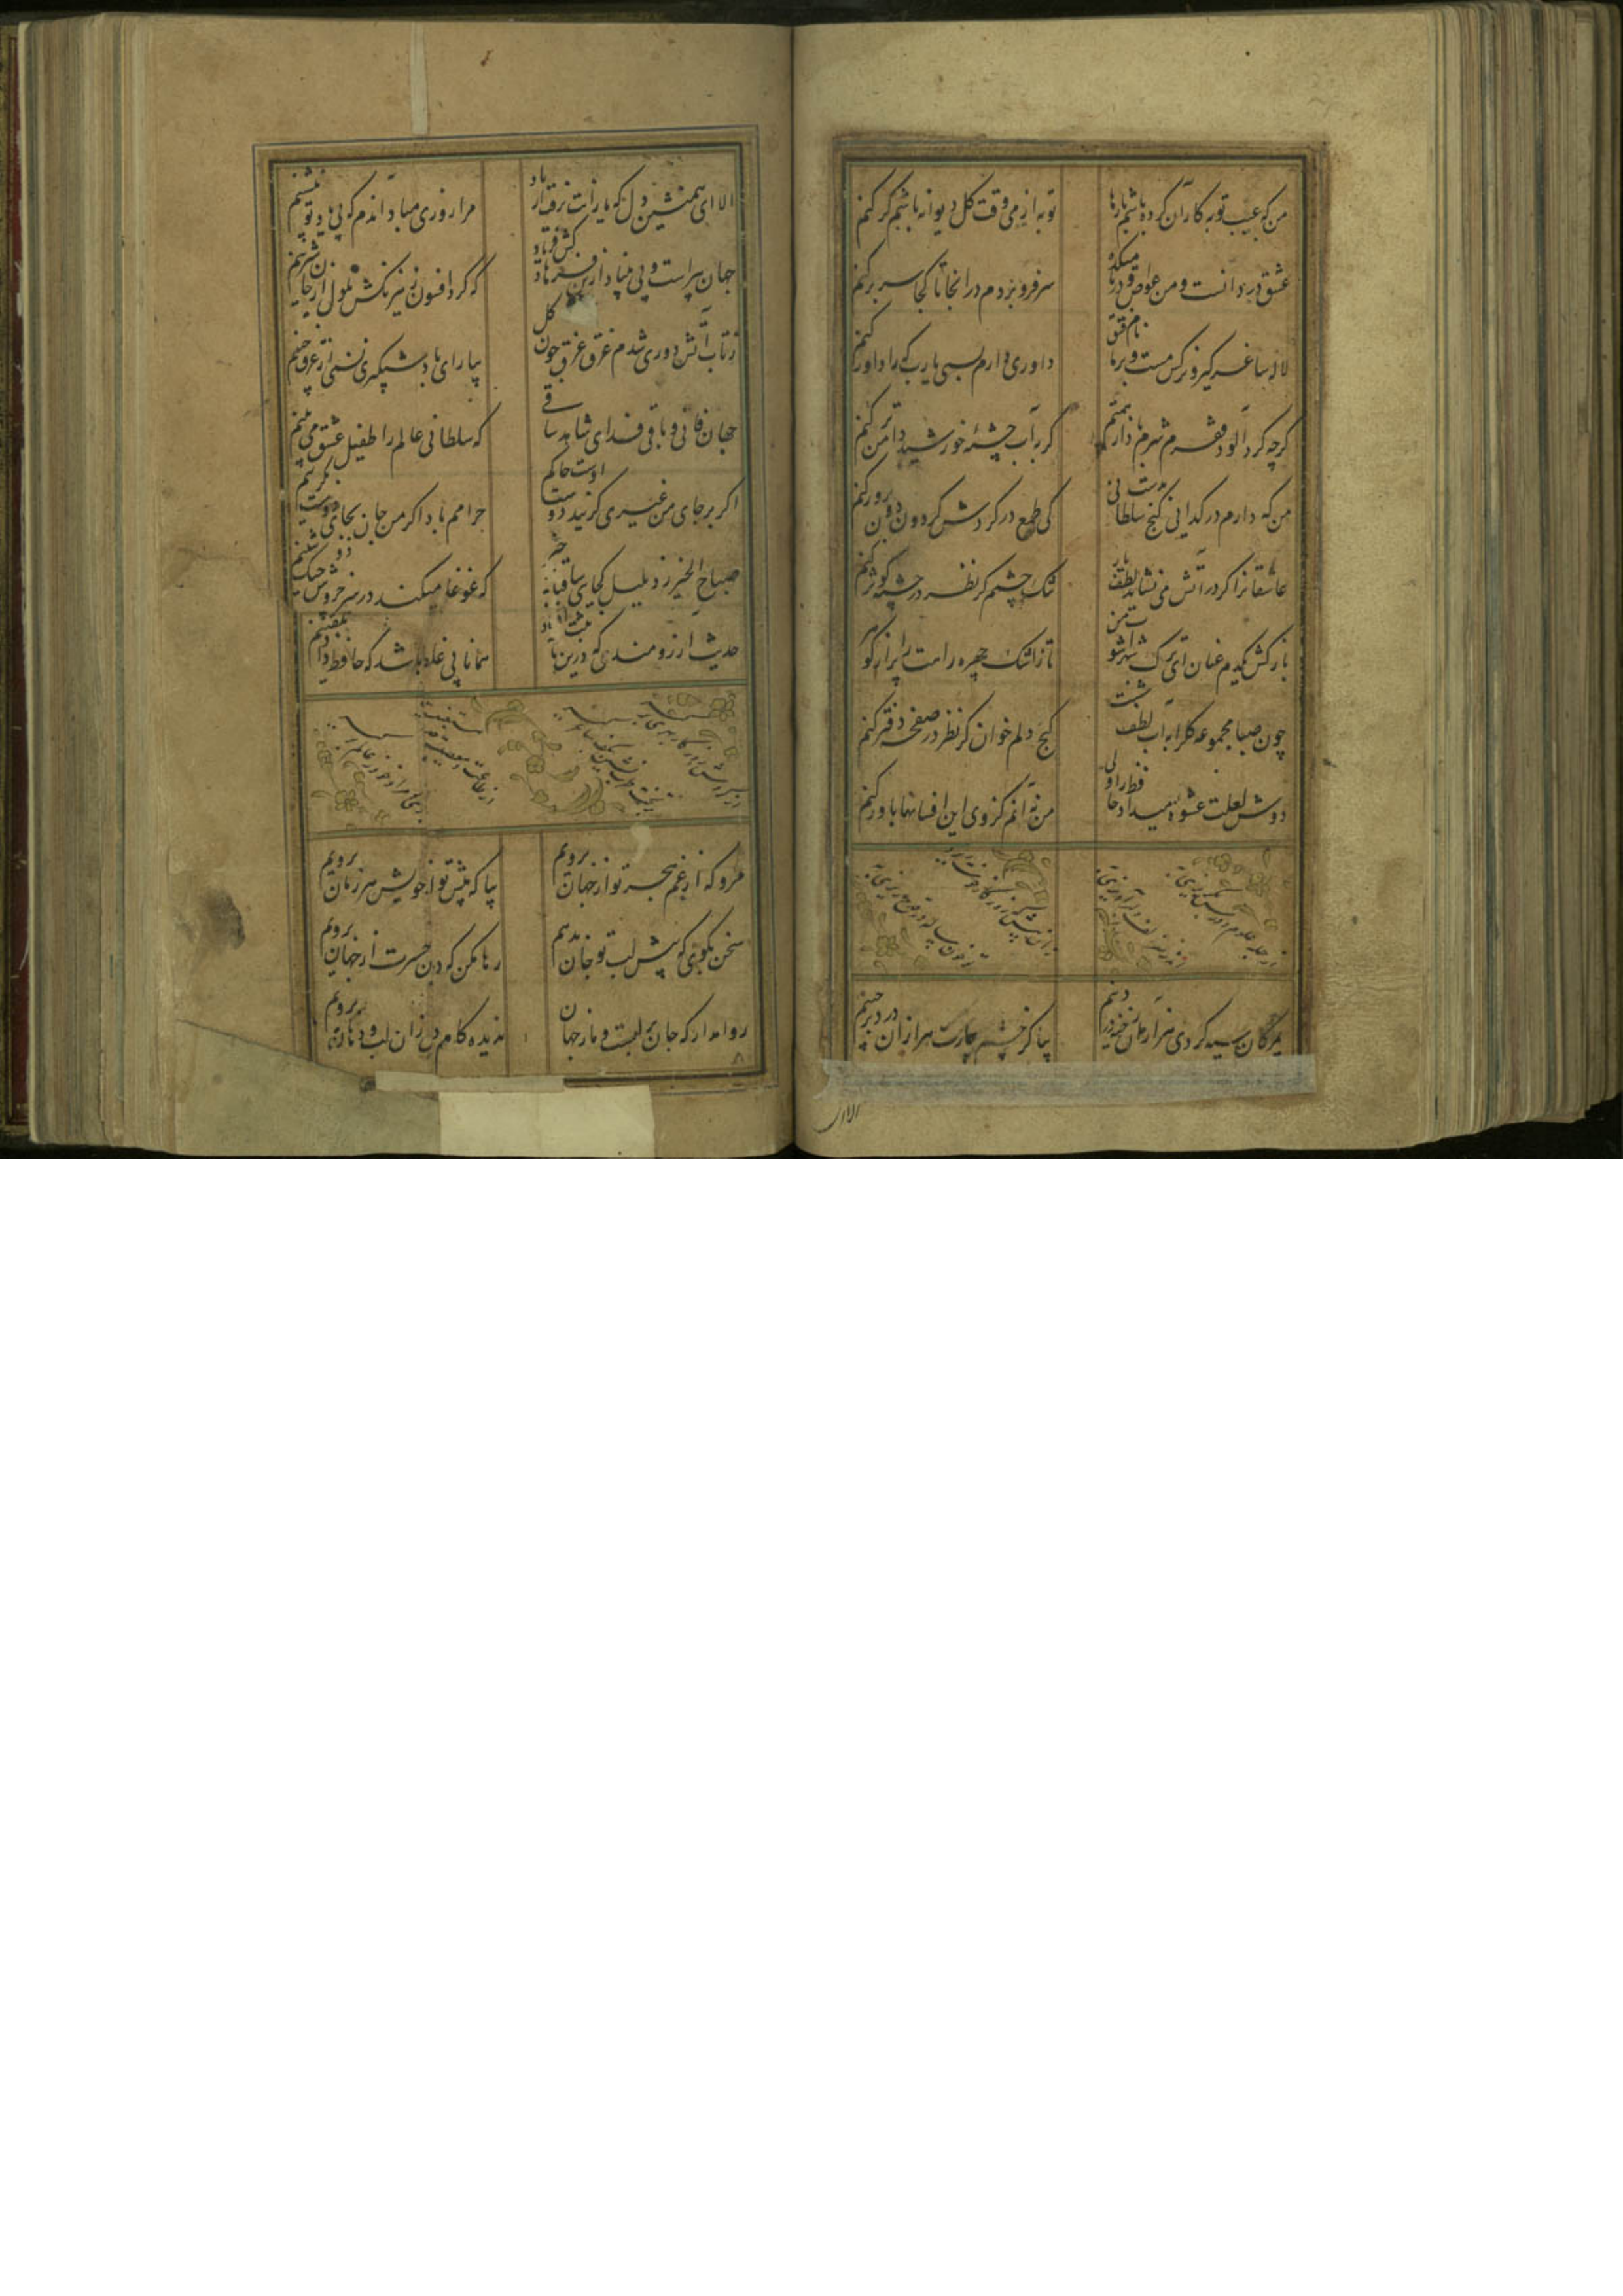 من که عیب توبه کاران کرده باشم بارها
توبه از می وقت کل دیوانه باشم کر کنم
عشق دردانست و من غواص و دریا میکده
سر فرو بردم در انجا تا کجا سر برکنم
لاله ساغر کیر و نرکس مست و بر ما نام فسق
داوری دارم بسی یارب که را داور کنم
کرچه کرد آلود فقرم شرم باد از همتم
کر بآب چشمهٔ خورشید دامن تر کنم
من که دارم در کدایی کنج سلطانی بدست
کی طمع در کردش کردون دون پرور کنم
عاشقانرا کر در آتش می نشاند لطف یار
تنک چشمم کر نظر در چشمه کوثر کنم
باز کش یکدم عنان ای ترک شهر آشوب من
تا ز اشک و چهره راهت را پر از کوهر
چون صبا مجموعه کل را به آب لطف شست
کج دلم خوان کر نظر در صفحه دفتر کنم
دوش لعلت عشوهٔ میداد حافظ را ولی
من نه آنم کز وی این افسانها باور کنم
بمژکان سیه کردی هزاران رخنه در دینم
بیا کز چشم بیمارت هزاران درد برچینم
الا ای
الا ای همنشین دل که یارانت برفت از یاد
مرا روزی مباد اندم که بی یاد تو بنشینم
جهان پیر است و بی بنیاد ازین فرهاد کش فریاد
که کرد افسون و نیرنکش ملول از جان شیرینم
ز تاب آتش دوری شدم غرق عرق چون کل
بیار ای باد شبکیری نسیمی از عرق چینم
جهان فانی و باقی فدای شاهد و ساقی
که سلطانی عالم را طفیل عشق می بینم
اکر بر جای من غیری کزیند دوست حاکم اوست
حرامم باد اکر من جان بجای دوست بکزینم
صباح الخیر زد بلبل کجایی ساقیا برخیز
که غوغا میکند در سر خروش چنک دوشینم
حدیث آرزومندی که در این نامه ثبت افتاد
همانا بی غلط باشد که حافظ داد تلقینم
مرو که از غم هجر تو از جهان برویم
بیا که پیش تو از خویش هر زمان برویم
سخن بکوی که پیش لب تو جان بدهیم
رها مکن که درین حسرت از جهان برویم
روا مدار که جان بر لبست و ما ز جهان
ندیده کام دل زان لب و دهان برویم